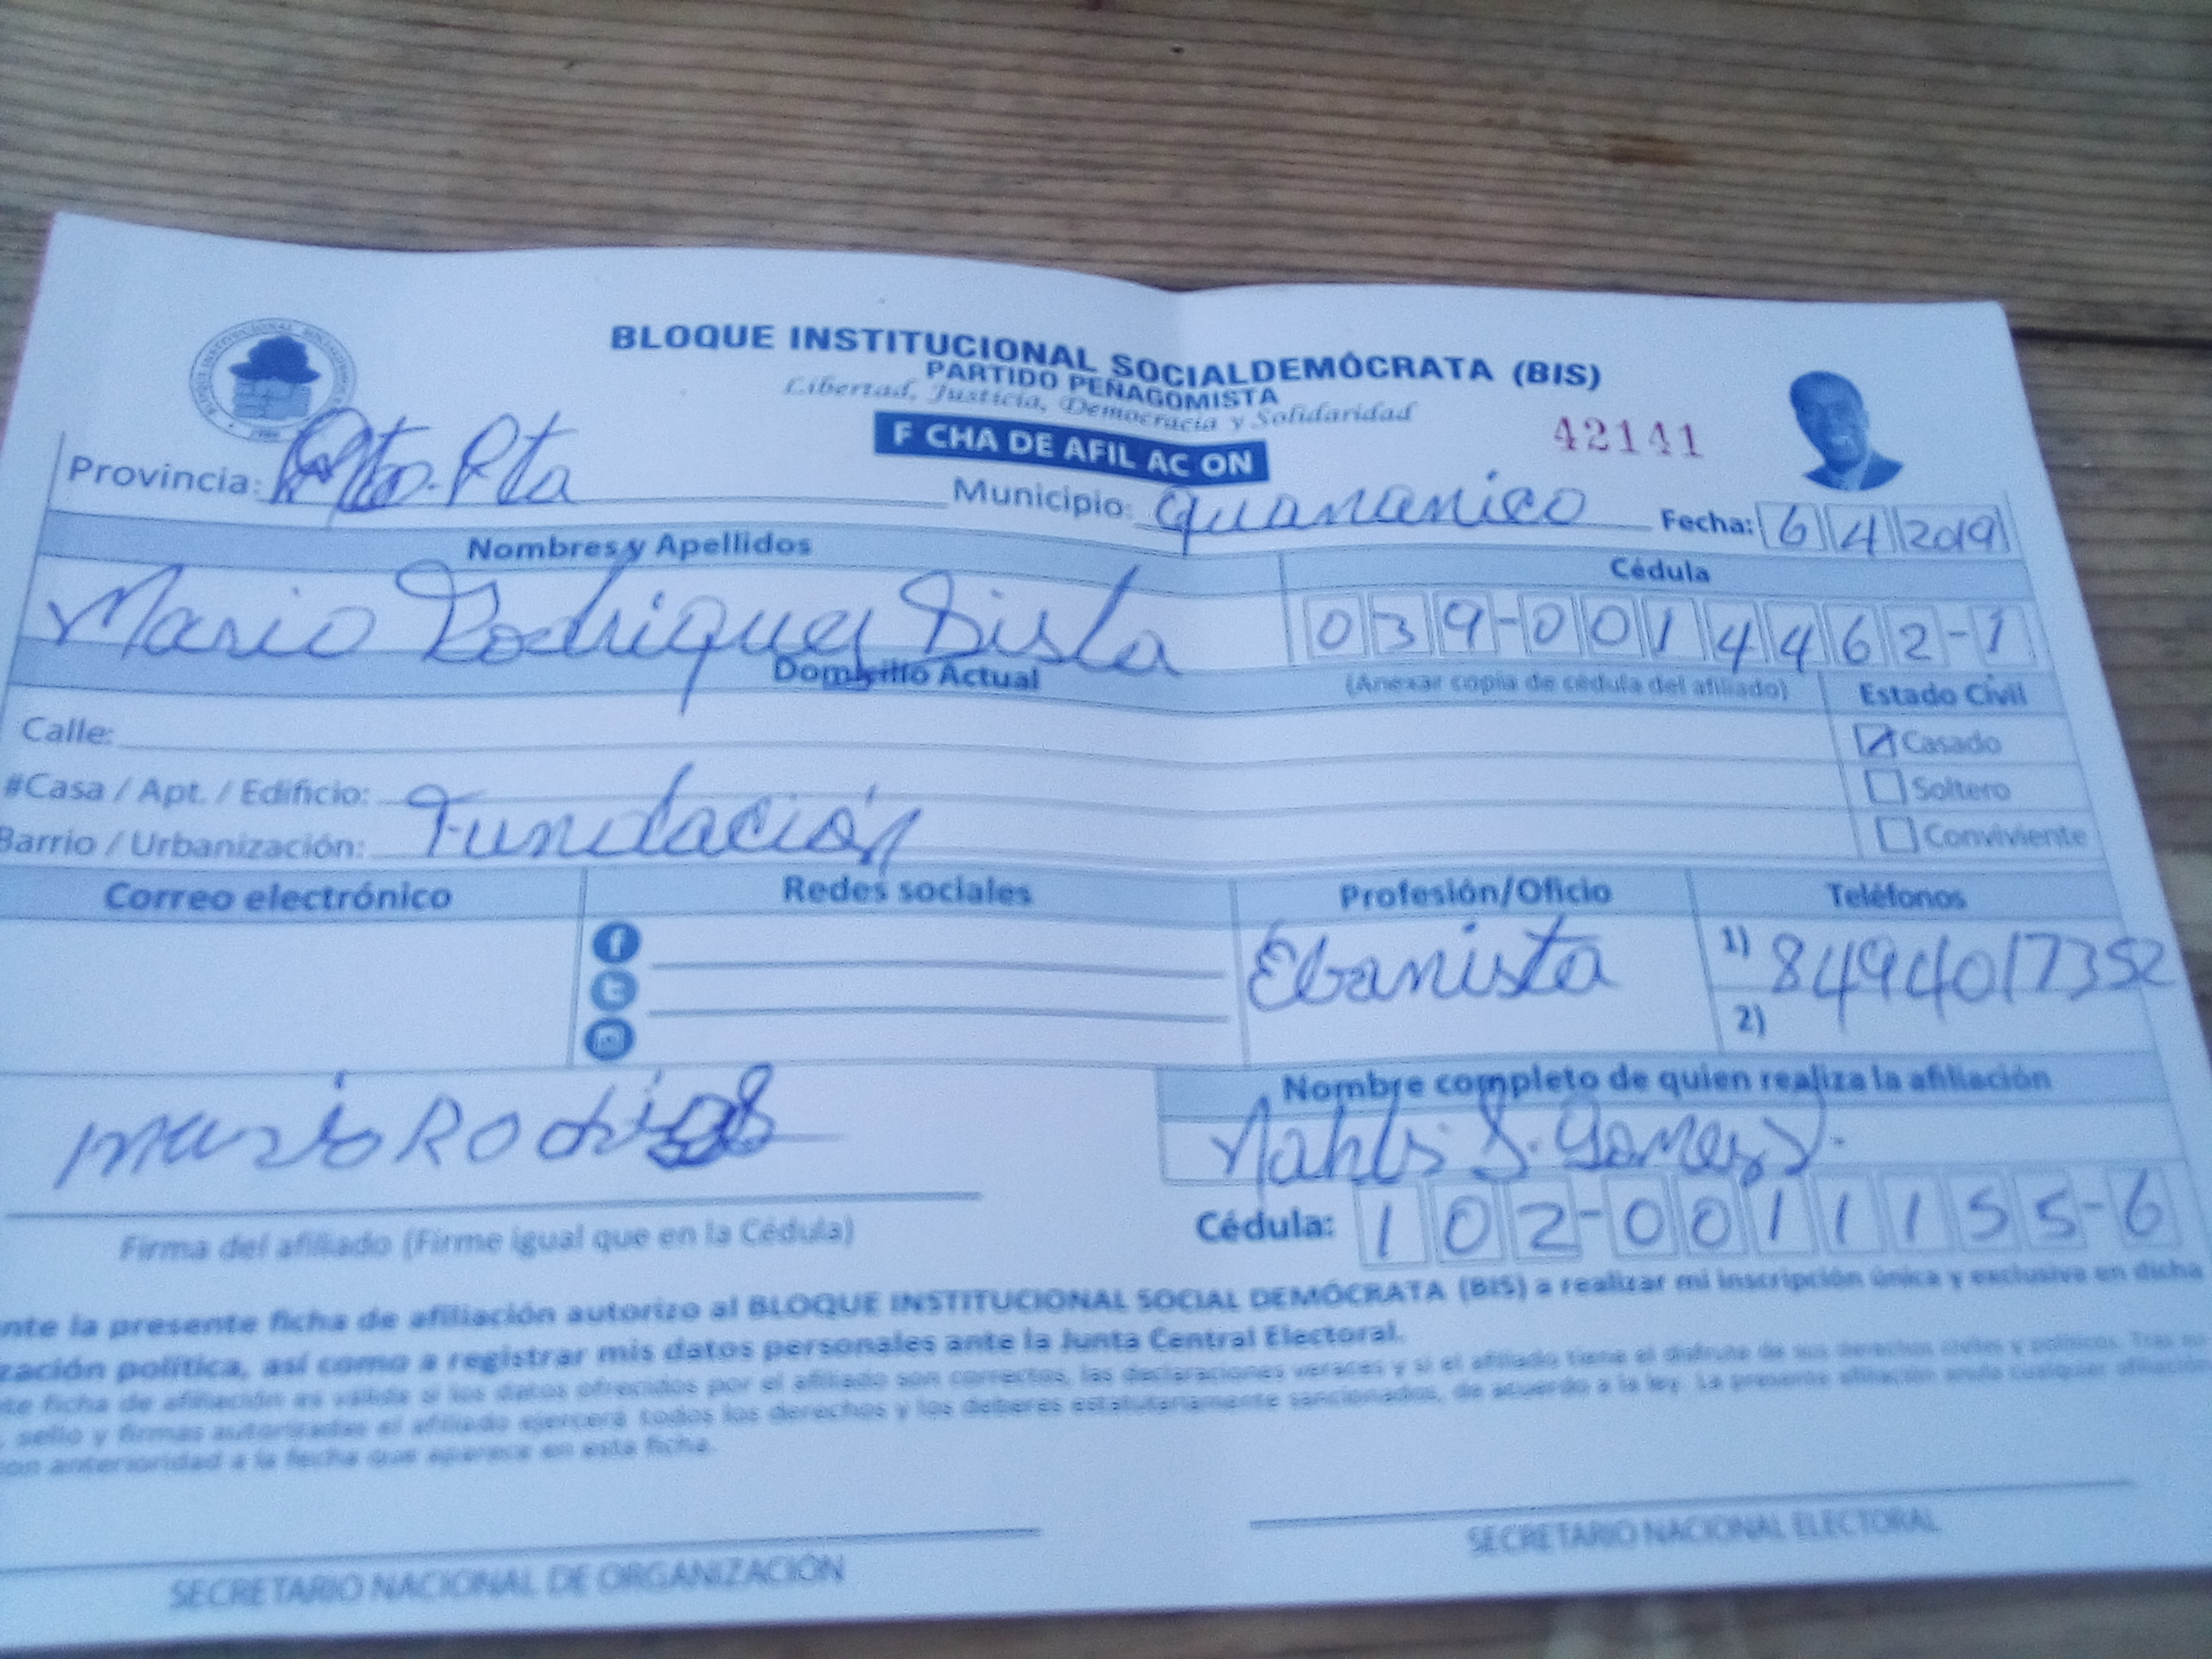 BLOQUE INSTITUCIONAL SOCIALDEMÓCRATA (BIS)
PARTIDO PEÑAGOMISTA
Libertad, Justicia, Democracia y Solidaridad
F CHA DE AFIL AC ON
42141
Provincia: Pto. Pta Municipio: Guananico Fecha: 6 4 2019
Nombres y Apellidos
Cédula
Mario Rodriguez Disla 039-0014462-1
Domicilio Actual (Anexar copia de cédula del afiliado) Estado Civil
Calle: Casado
#Casa / Apt. / Edificio: Soltero
Barrio / Urbanización: Fundación Conviviente
Correo electrónico Redes sociales Profesión/Oficio Teléfonos
Ebanista 1) 8494017352
2)
Nombre completo de quien realiza la afiliación
Mario
S. Gomez
Cédula: 102-0011155-6
Firma del afiliado (Firme igual que en la Cédula)
nte la presente ficha de afiliación autorizo al BLOQUE INSTITUCIONAL SOCIAL DEMÓCRATA (BIS) a realizar mi inscripción única y exclusiva en dicha
zación política, así como a registrar mis datos personales ante la Junta Central Electoral.
te ficha de afiliación es válida si los datos ofrecidos por el afiliado son correctos, las declaraciones veraces y si el afiliado tiene el disfrute de sus derechos civiles y políticos. Tras su
, sello y firmas autorizadas el afiliado ejercerá todos los derechos y los deberes estatutariamente sancionados, de acuerdo a la ley. La presente afiliación anula cualquier afiliación
on anterioridad a la fecha que aparece en esta ficha.
SECRETARIO NACIONAL DE ORGANIZACIÓN SECRETARIO NACIONAL ELECTORAL